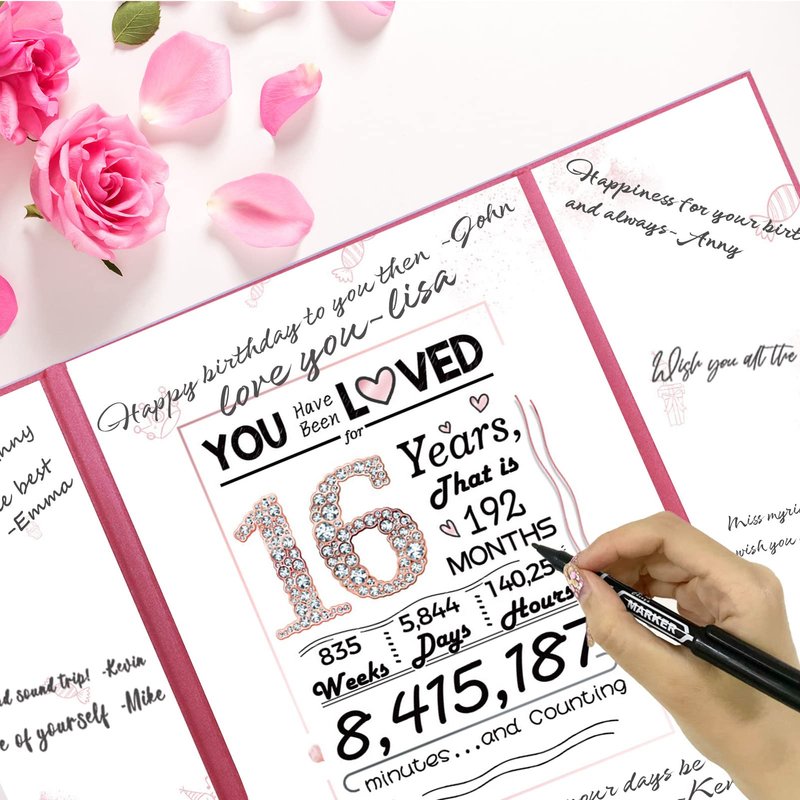 Happy birthday to you then -John
love you-lisa
YOU Have Been LOVED
for
16 Years,
That is
192
MONTHS
835 Weeks
5,844 Days
Hours
8,415,187
minutes...and counting
Happiness for your
and always- Anny
Wish you all the
Miss
wish you
best
-Emma
sound trip! -Kevin
of yourself -Mike
your days be
MARKER